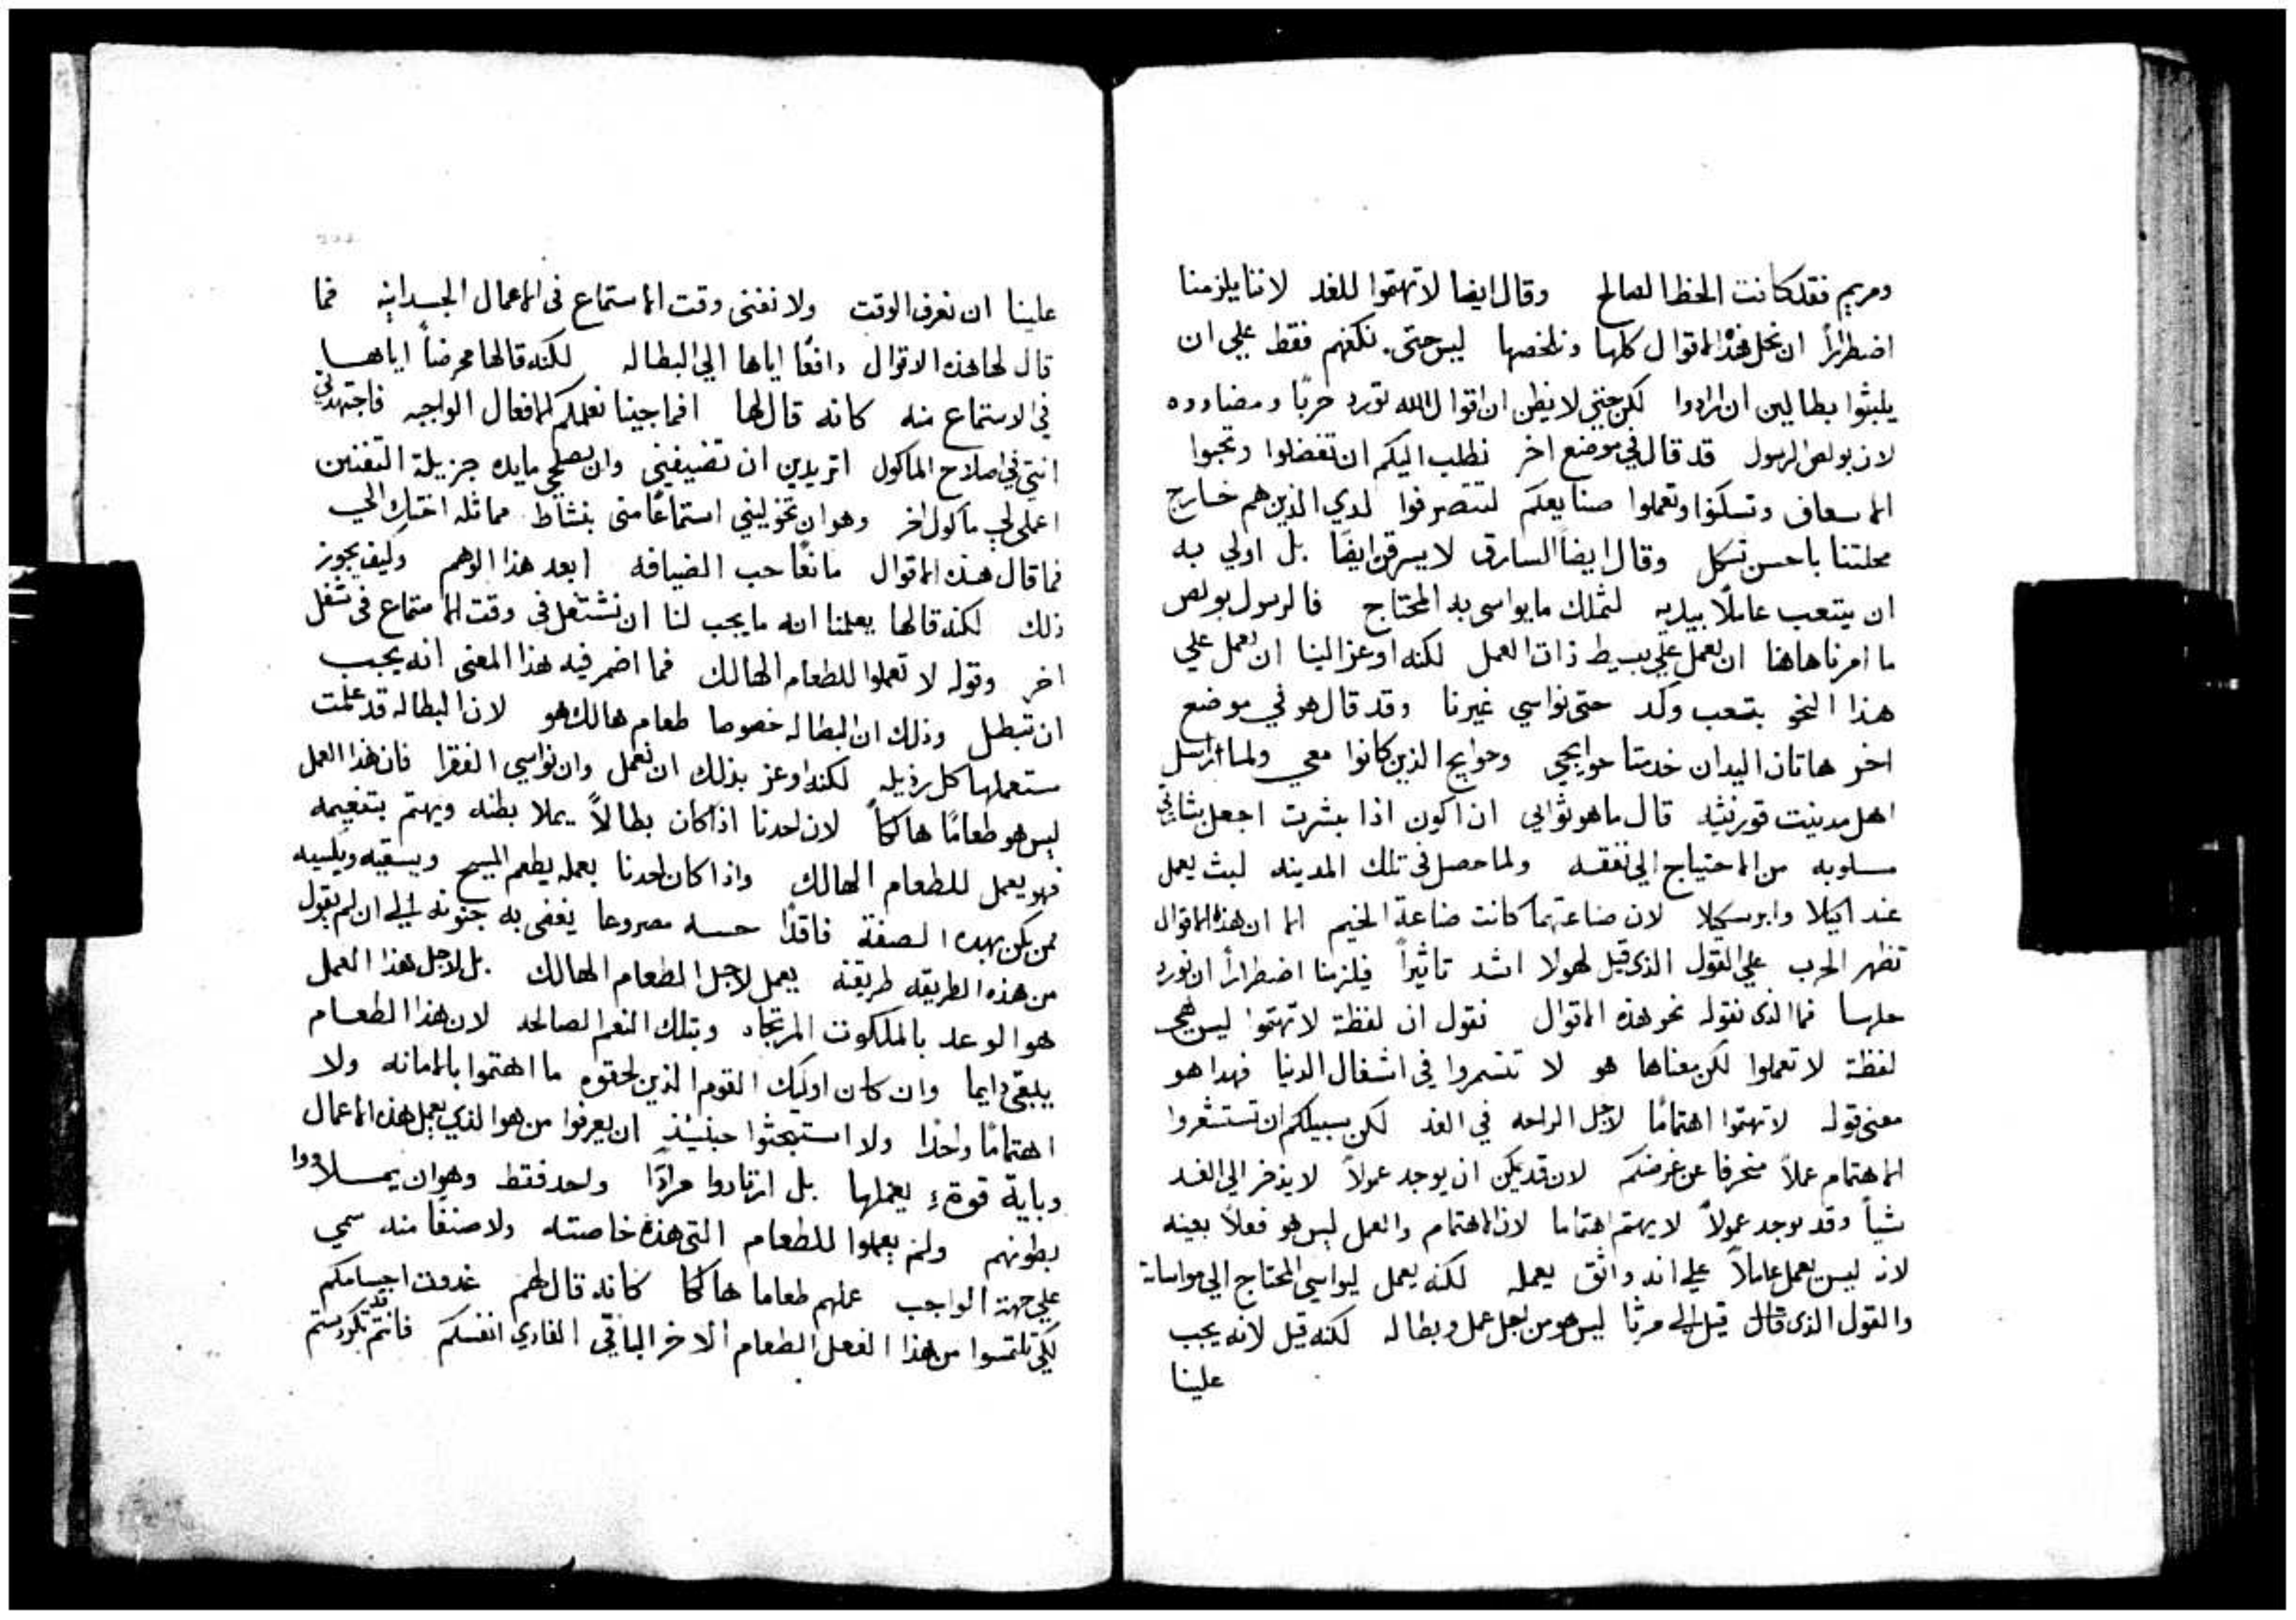 ومريم فقد كانت الحظ الصالح وقال ايضا لا تهتموا للغد لاننا يلزمنا
اضطراراً ان نحل هذه الاقوال كلها ونلخصها ليس حتى نكفهم فقط علي ان
يلبثوا بطالين ان ارادوا لكن حتي لا يظن ان اقوال الله تورد حربًا ومضادده
لان بولص الرسول قد قال في موضع اخر نطلب اليكم ان تفضلوا وتحبوا
الاسعاف وتسكنوا وتعملوا صنايعكم لتتصرفوا لدي الذين هم خارج
محلتنا باحسن شكل وقال ايضاً السارق لا يسرقن ايضًا بل اولي به
ان يتعب عاملاً بيديه لتملك ما يواسى به المحتاج فالرسول بولص
ما امرنا هاهنا ان نعمل علي بسيط ذات العمل لكنه اوعز الينا ان نعمل علي
هذا النحو بتعب وكد حتى نواسي غيرنا وقد قال هو في موضع
اخر هاتان اليدان خدمتا حوايجي وحوايج الذين كانوا معي ولما راسل
اهل مدينت قورنثيه قال ما هو ثوابي ان اكون اذا بشرت اجعل بشارتي
مسلوبه من الاحتياج الي نفقه ولما حصل في تلك المدينه لبث يعمل
عند اكيلا وابرسكلا لان صناعتهما كانت صناعة الخيم الا ان هذه الاقوال
تظهر الحرب علي القول الذي قيل لهولا اشد تاثيراً فيلزمنا اضطراراً ان نورد
حلها فما الذى نقوله نحو هذه الاقوال نقول ان لفظة لا تهتموا ليس هي
لفظة لا تعملوا لكن معناها هو لا تتسمروا في اشغال الدنيا فهدا هو
معنى قوله لا تهتموا اهتمامًا لاجل الراحه في الغد لكن سبيلكم ان تستشعروا
الاهتمام عملاً منحرفا عن غرضكم لان قد يمكن ان يوجد عمولاً لا يذخر الي الغد
شيأً وقد يوجد عمولاً لا يهتم اهتماما لان الاهتمام والعمل ليس هو فعلاً بعينه
لان ليس يعمل عاملاً علي انه واثق بعمله لكنه يعمل ليواسي المحتاج الي مواساة
والقول الذى قال قيل الي مرثا ليس هو من اجل عمل وبطاله لكنه قيل لانه يجب
علينا
علينا ان نعرف الوقت ولا نفنى وقت الاستماع فى الاعمال الجسدانيه فما
قال لها هذه الاقوال دافعًا اياها الي البطاله لكنه قالها محرضاً اياها
في الاستماع منه كانه قال لها انما جينا نعلمكم الافعال الواجبه فاجتهدتي
انتي في اصلاح الماكول اتريدين ان تضيفيني وان تصلحي مايده جزيلة التفنين
اعملي لي ماكول اخر وهو ان تخوليني استماعًا مني بنشاط مماثله اختك الي
فما قال هذه الاقوال مانعًا حب الضيافه ابعد هذا الوهم وكيف يجوز
ذلك لكنه قالها يعلمنا انه ما يجب لنا ان نشتغل فى وقت الاستماع فى شغل
اخر وقوله لا تعملوا للطعام الهالك فما اضمر فيه هذا المعنى انه يجب
ان تبطل وذلك ان البطاله خصوصا طعام هالك هو لان البطاله قد علمت
مستعملها كل رذيله لكنه اوعز بذلك ان نعمل وان نواسي الفقرا فان هذا العمل
ليس هو طعامًا هالكاً لان احدنا اذا كان بطالاً يملا بطنه ويهتم بتنعيمه
فهو يعمل للطعام الهالك واذا كان احدنا بعمله يطعم المسيح ويسقيه ويكسيه
فمن يكن بهده الصفة فاقدًا حسه مصروعا يفضى به جنونه الي ان لم يقول
من هذه الطريقه طريقته يعمل لاجل الطعام الهالك بل لاجل هذا العمل
هو الوعد بالملكوت المرتجاه وبتلك النعم الصالحه لان هذا الطعام
يبقى دايما وان كان اوليك القوم الذين لحقوه ما اهتموا بالامانه ولا
اهتمامًا واحدًا ولا استبحثوا حينيذٍ ان يعرفوا من هو الذي يعمل هذه الاعمال
وباية قوة يعملها بل ارتادوا مرادًا واحد فقط وهو ان يملاووا
بطونهم ولم يعملوا للطعام التى هذه خاصته ولا صنفًا منه سمي
علي جهة الواجب عملهم طعاما هالكا كانه قال لهم غدوت اجسامكم
لكي تلتمسوا من هذا الفعل الطعام الاخر الباقي الغادي انفسكم فانتم قد تكردستم